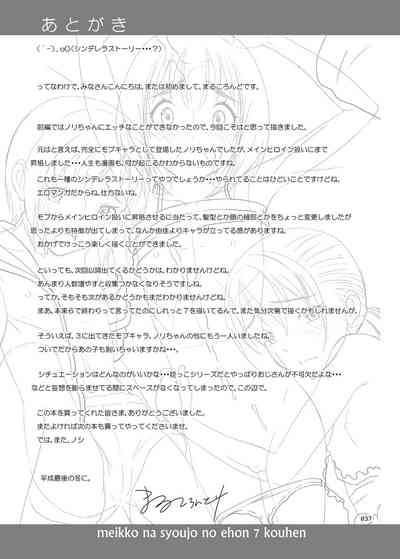 あとがき
(´-).｡oO(シンデレラストーリー・・・?)
ってなわけで、みなさんこんにちは、または初めまして、まるころんどです。
前編ではノリちゃんにエッチなことができなかったので、今回こそはと思って描きました。
元はと言えば、完全にモブキャラとして登場したノリちゃんでしたが、メインヒロイン扱いにまで
昇格しました・・・人生も漫画も、何が起こるかわからないものですね。
これも一種のシンデレラストーリーってやつでしょうか・・・やられてることはひどいことですけどね。
エロマンガだからね。仕方ないね。
モブからメインヒロイン扱いに昇格させるに当たって、髪型とか顔の細部とかをちょっと変更しましたが
思ったよりも特徴が出てしまって、なんか由佳よりキャラが立ってる感がありますね。
おかげでけっこう楽しく描くことができました。
といっても、次回以降出てくるかどうかは、わかりませんけどね。
あんまり人数増やすと収集つかなくなりそうですしね。
ってか、そもそも次があるかどうかもまだわかりませんけどね。
まあ、本来６で終わりって言ってたのにしれっと７を描いてるんで、また気分次第で描くかもしれませんが。
そういえば、３に出てきたモブキャラ、ノリちゃんの他にもう一人いましたね。
ついでだからあの子も剥いちゃいますかね・・・。
シチュエーションはどんなのがいいかな・・・姪っこシリーズだとやっぱりおじさんが不可欠だよな・・・
などと妄想を膨らませてる間にスペースがなくなってしまったので、この辺で。
この本を買ってくれた皆さま、ありがとうございました。
またよければ次の本も買ってやってくださいませ。
では、また。ノシ
平成最後の冬に。
037
meikko na syoujo no ehon 7 kouhen